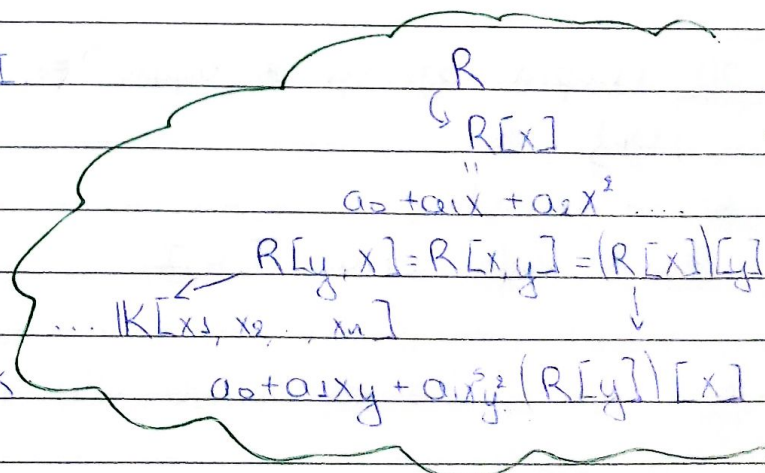 R
↪ R[x]
"
a₀ + a₁x + a₂x² ....
R[y, x] = R[x, y] = (R[x])[y]
... K[x₁, x₂ ... xₙ]
a₀ + a₁xy + a₁x²y² (R[y])[x]